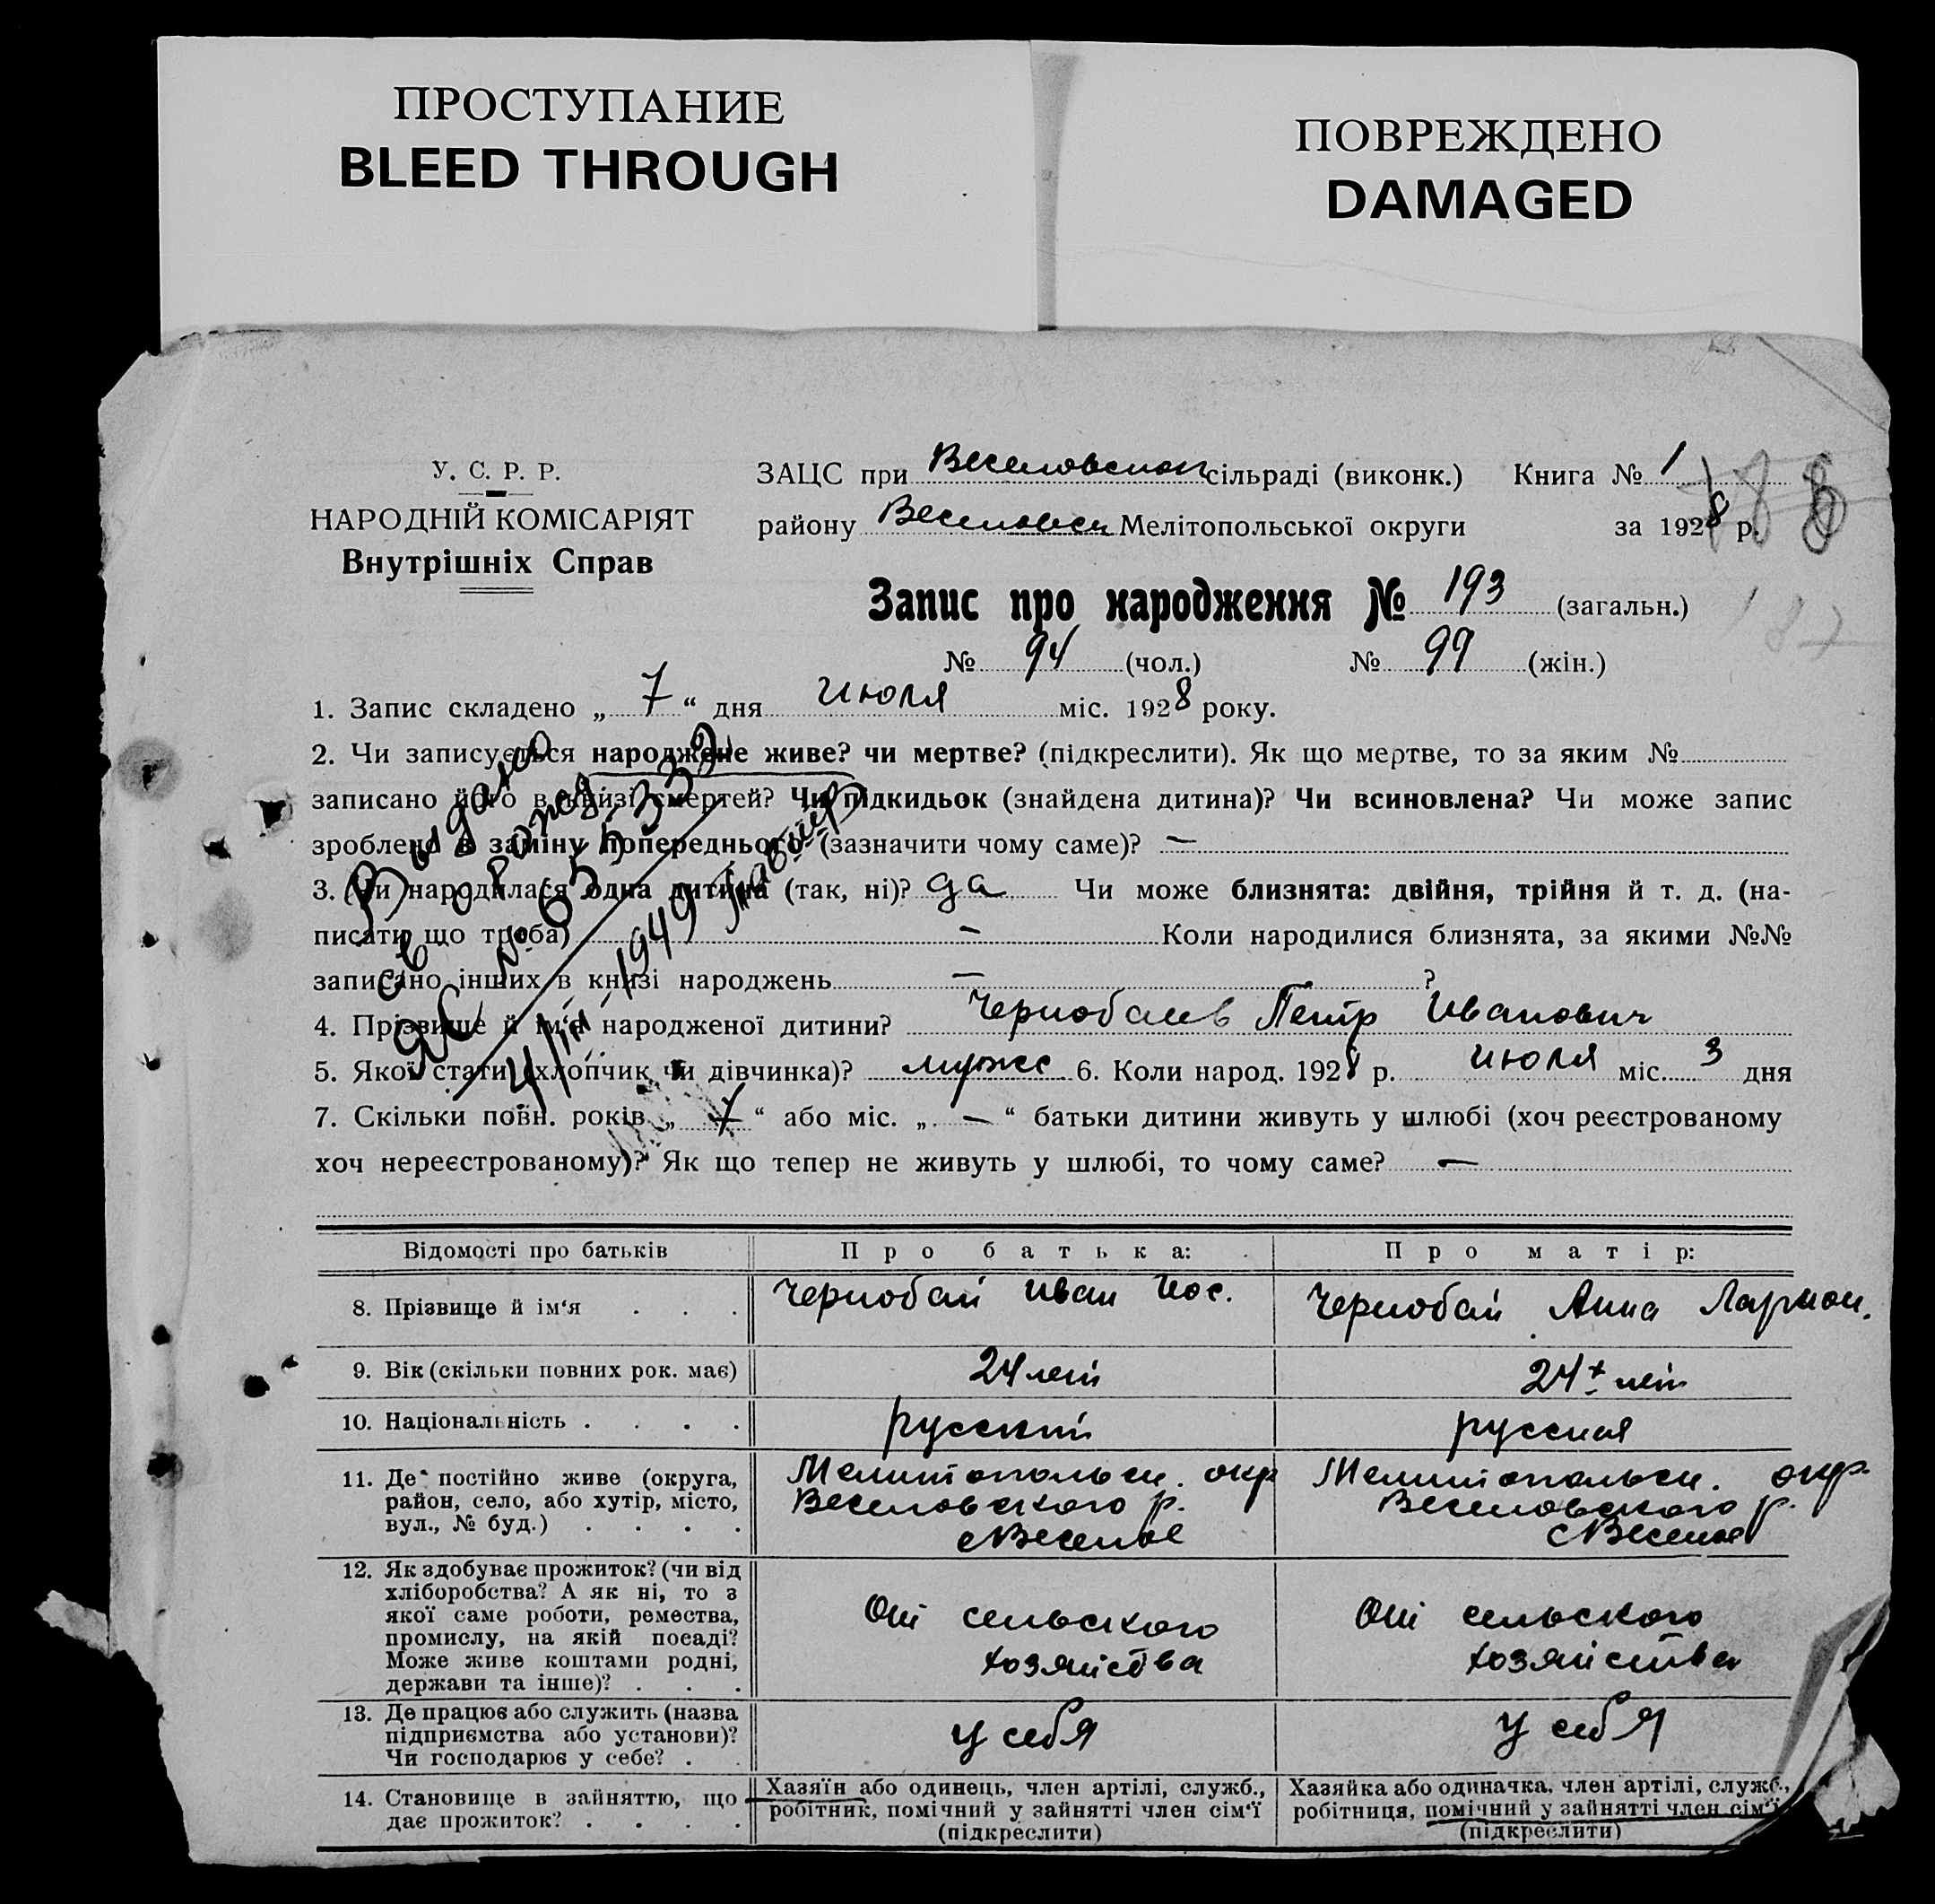 ПРОСТУПАНИЕ
BLEED THROUGH
ПОВРЕЖДЕНО
DAMAGED
У. С. Р. Р.
НАРОДНІЙ КОМІСАРІЯТ
Внутрішніх Справ
ЗАЦС при Веселовском сільраді (виконк.) Книга № 1
району Веселовск Мелітопольської округи за 1928 р.
188
187
Запис про народження № 193 (загальн.)
№ 94 (чол.) № 99 (жін.)
1. Запис складено „ 7 “ дня июля міс. 1928 року.
2. Чи записується народжене живе? чи мертве? (підкреслити). Як що мертве, то за яким №
записано його в книзі смертей? Чи підкидьок (знайдена дитина)? Чи всиновлена? Чи може запис
зроблено в заміну попереднього (зазначити чому саме)? —
3. Чи народилася одна дитина (так, ні)? да Чи може близнята: двійня, трійня й т. д. (на-
писати що треба) — Коли народилися близнята, за якими №№
записано інших в книзі народжень — ?
4. Прізвище й ім‘я народженої дитини? Чернобаев Петр Иванович
5. Якої стати (хлопчик чи дівчинка)? мужс 6. Коли народ. 1928 р. июля міс. 3 дня
7. Скільки повн. років „ 7 “ або міс. „ — “ батьки дитини живуть у шлюбі (хоч реєстрованому
хоч нереєстрованому)? Як що тепер не живуть у шлюбі, то чому саме? —
Выдано
св о рожд
№ 655332
4/III 1949
Відомості про батьків Про батька: Про матір:
8. Прізвище й ім‘я . . . Чернобай Иван Иос. Чернобай Анна Ларион.
9. Вік (скільки повних рок. має) 24 лет 24 лет
10. Національність . . . . русский русская
11. Де постійно живе (округа,
район, село, або хутір, місто,
вул., № буд.) . . . .
Мелитопольск. окр
Веселовского р.
с Веселое
Мелитопольск. окр.
Веселовского р.
с Веселое
12. Як здобуває прожиток? (чи від
хліборобства? А як ні, то з
якої саме роботи, ремества,
промислу, на якій посаді?
Може живе коштами родні,
держави та інше)? . . .
От сельского
хозяйства
От сельского
хозяйства
13. Де працює або служить (назва
підприємства або установи)?
Чи господарює у себе? . .
у себя
у себя
14. Становище в зайняттю, що
дає прожиток? . . . .
Хазяїн або одинець, член артілі, служб.,
робітник, помічний у зайнятті член сім‘ї
(підкреслити)
Хазяйка або одиначка, член артілі, служб.,
робітниця, помічний у зайнятті член сім‘ї
(підкреслити)